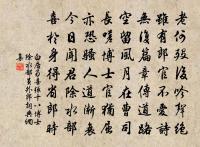 老何歿後吟聲絕
雖有郎官不愛詩
無復篇章傳道路
空留風月在曹司
長嗟博士官猶屈
亦恐騷人道漸衰
今日聞君除水部
喜於身得省郎時
白居易喜張十八博士
除水部員外郎
集